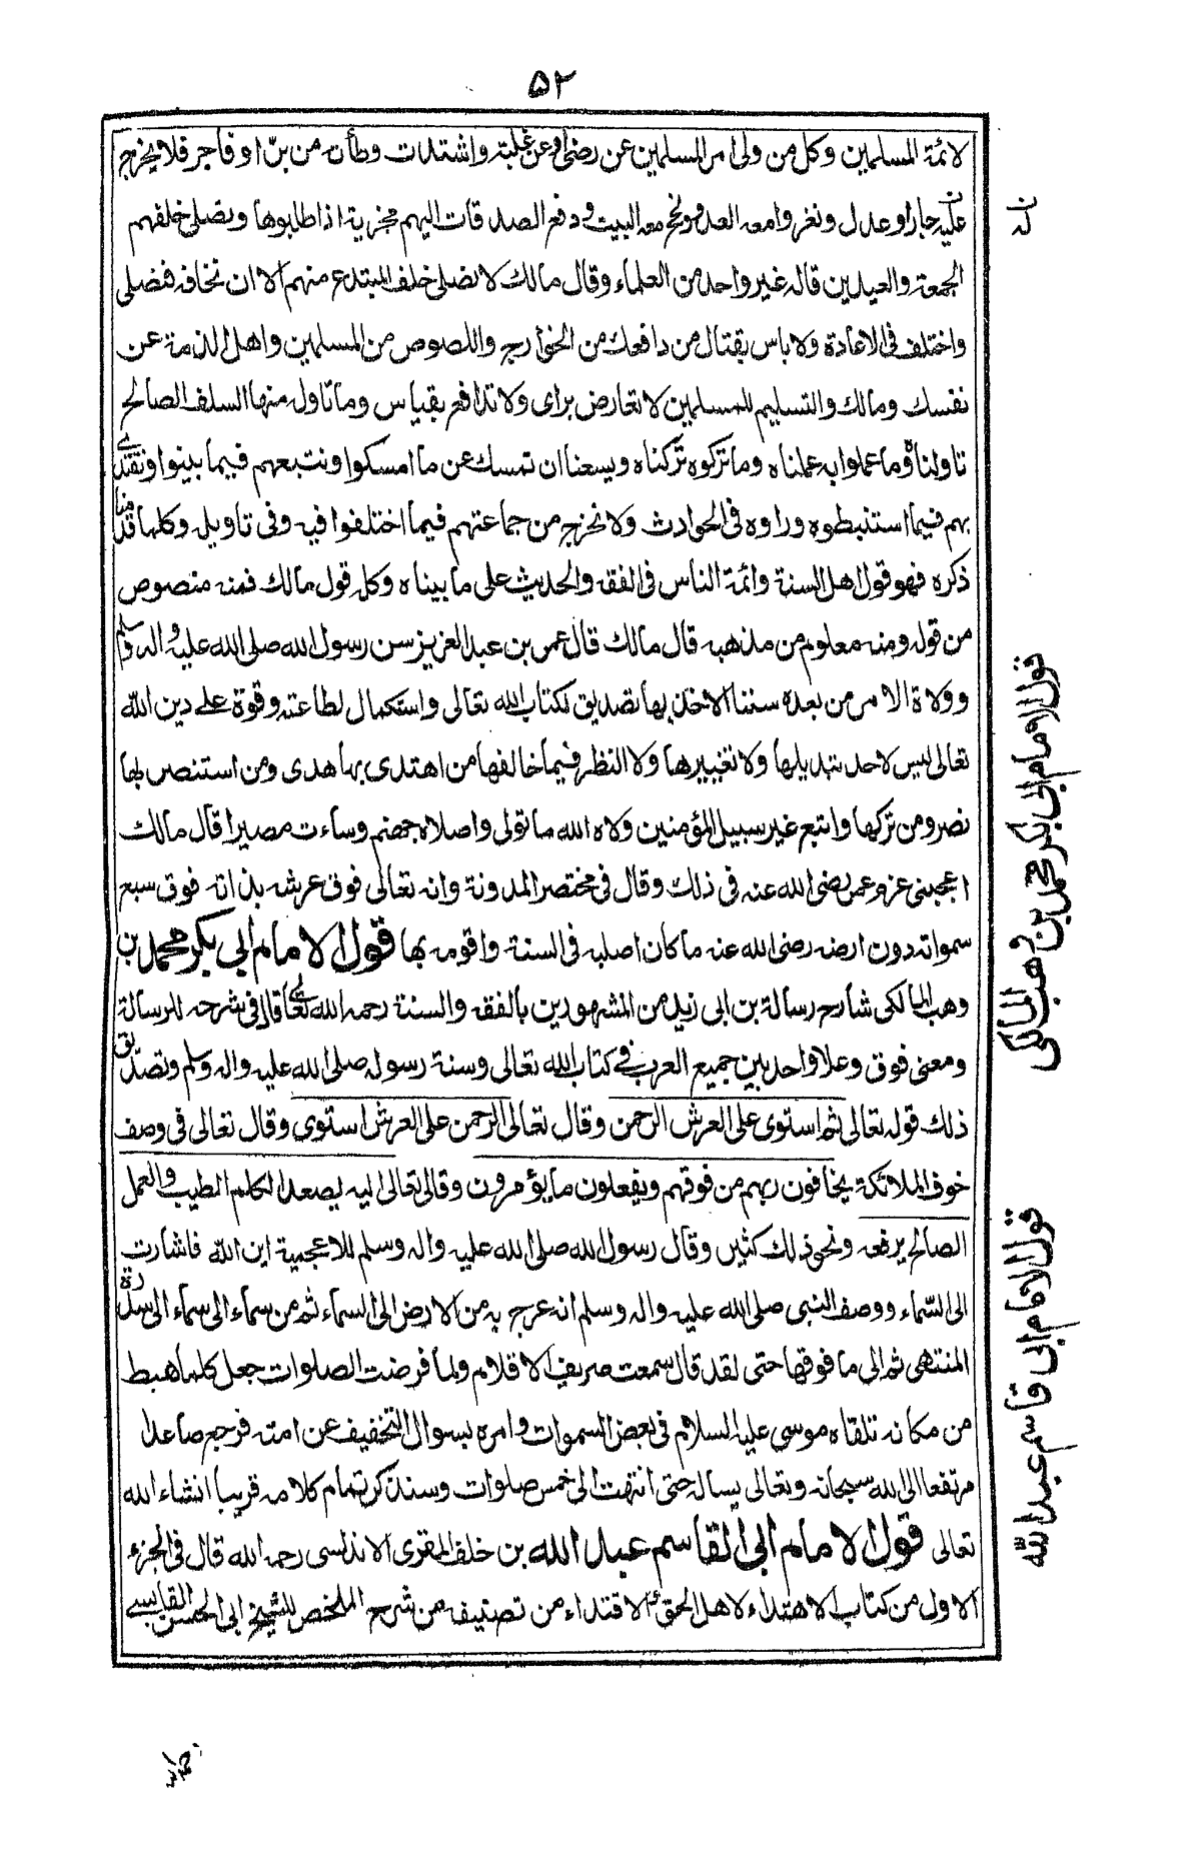 ۵۲
لائمة المسلمين وكل من ولى امر المسلمين عن رضى او عن غلبة واشتدت وطأته من بر او فاجر فلا يخرج
عليه جارا وعدل ونغزوا معه العدو ونحج معه البيت و دفع الصدقات اليهم مجزية اذا طلبوها ونصلى خلفهم
الجمعة والعيدين قاله غير واحد من العلماء وقال مالك لا نصلى خلف المبتدع منهم الا ان نخافه فنصلى
واختلف فى الاعادة ولا باس بقتال من دافعك من الخوارج واللصوص من المسلمين واهل الذمة عن
نفسك ومالك والتسليم للمسلمين لا تعارض براى ولا تدافع بقياس وما تاوله منها السلف الصالح
تاولناه وما عملوا به عملناه وما تركوه تركناه ويسعنا ان نمسك عن ما امسكوا ونتبعهم فيما بينوا ونقتدى
بهم فيما استنبطوه وراوه فى الحوادث ولا نخرج من جماعتهم فيما اختلفوا فيه وفى تاويله وكلما قدمنا
ذكره فهو قول اهل السنة وائمة الناس فى الفقه والحديث على ما بيناه وكله قول مالك فمنه منصوص
من قوله ومنه معلوم من مذهبه قال مالك قال عمر بن عبد العزيز سن رسول الله صلى الله عليه واله وسلم
وولاة الامر من بعده سننا الاخذ بها تصديق لكتاب الله تعالى واستكمال لطاعته وقوة على دين الله
تعالى ليس لاحد تبديلها ولا تغييرها ولا النظر فيما خالفها من اهتدى بها هدى ومن استنصر بها
نصر ومن تركها واتبع غير سبيل المؤمنين ولاه الله ما تولى واصلاه جهنم وساءت مصيرا قال مالك
اعجبنى عزم عمر رضى الله عنه فى ذلك وقال فى مختصر المدونة وانه تعالى فوق عرشه بذاته فوق سبع
سمواته دون ارضه رضى الله عنه ما كان اصلبه فى السنة واقومه بها قول الامام ابى بكر محمد بن
وهب المالكى شارح رسالة بن ابى زيد من المشهورين بالفقه والسنة رحمه الله تعالى قال فى شرحه للرسالة
ومعنى فوق وعلا واحد بين جميع العرب فى كتاب الله تعالى وسنة رسوله صلى الله عليه واله وسلم وتصديق
ذلك قوله تعالى ثم استوى على العرش الرحمن وقال تعالى الرحمن على العرش استوى وقال تعالى فى وصف
خوف الملائكة يخافون ربهم من فوقهم ويفعلون ما يؤمرون وقال تعالى اليه يصعد الكلم الطيب والعمل
الصالح يرفعه ونحو ذلك كثير وقال رسول الله صلى الله عليه واله وسلم للاعجمية اين الله فاشارت
الى السماء ووصف النبى صلى الله عليه واله وسلم انه عرج به من الارض الى السماء ثم من سماء الى سماء الى سدرة
المنتهى ثم الى ما فوقها حتى لقد قال سمعت صريف الاقلام ولما فرضت الصلوات جعل كلما هبط
من مكانه تلقاه موسى عليه السلام فى بعض السموات وامره بسوال التخفيف عن امته فرجع صاعدا
مرتفعا الى الله سبحانه وتعالى يساله حتى انتهت الى خمس صلوات وسنذكر تمام كلامه قريبا انشاء الله
تعالى قول الامام ابى القاسم عبد الله بن خلف المقرى الاندلسى رحمه الله قال فى الجزء
الاول من كتاب الاهتداء لاهل الحق والاقتداء من تصنيفه من شرح الملخص للشيخ ابى الحسن القابسى
قول الامام ابى بكر محمد بن وهب المالكى
قول الامام ابى قاسم عبد الله